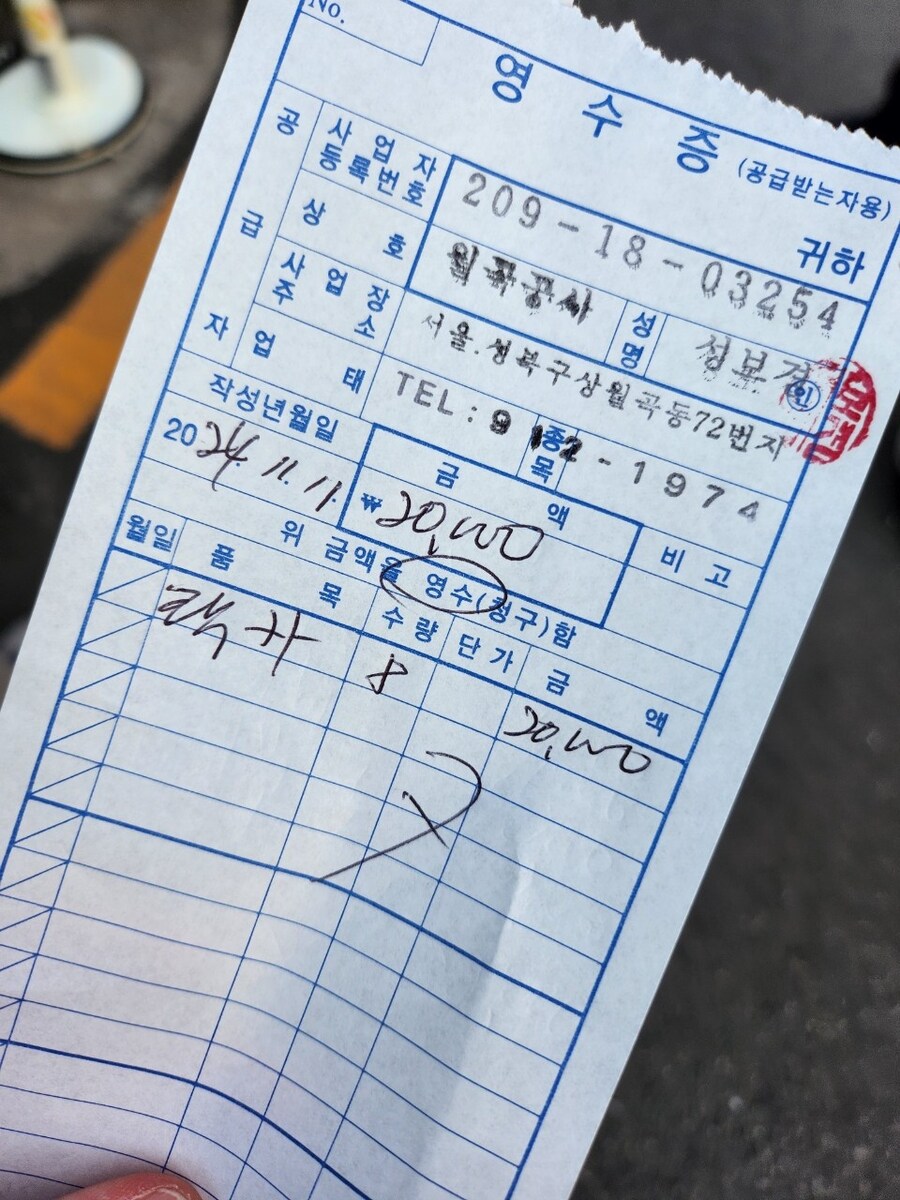 No.
영 수 증 (공급받는자용)
귀하
공급자
사업자등록번호 209-18-03254
상호 월곡공사 성명 성본경 인
사업장주소 서울.성북구상월곡동72번지
업태 TEL:912-1974 종목
작성년월일 금액 비고
2024. 11. 11. ₩ 20,000
위 금액을 영수(청구)함
월일 품목 수량 단가 금액
8 20,000